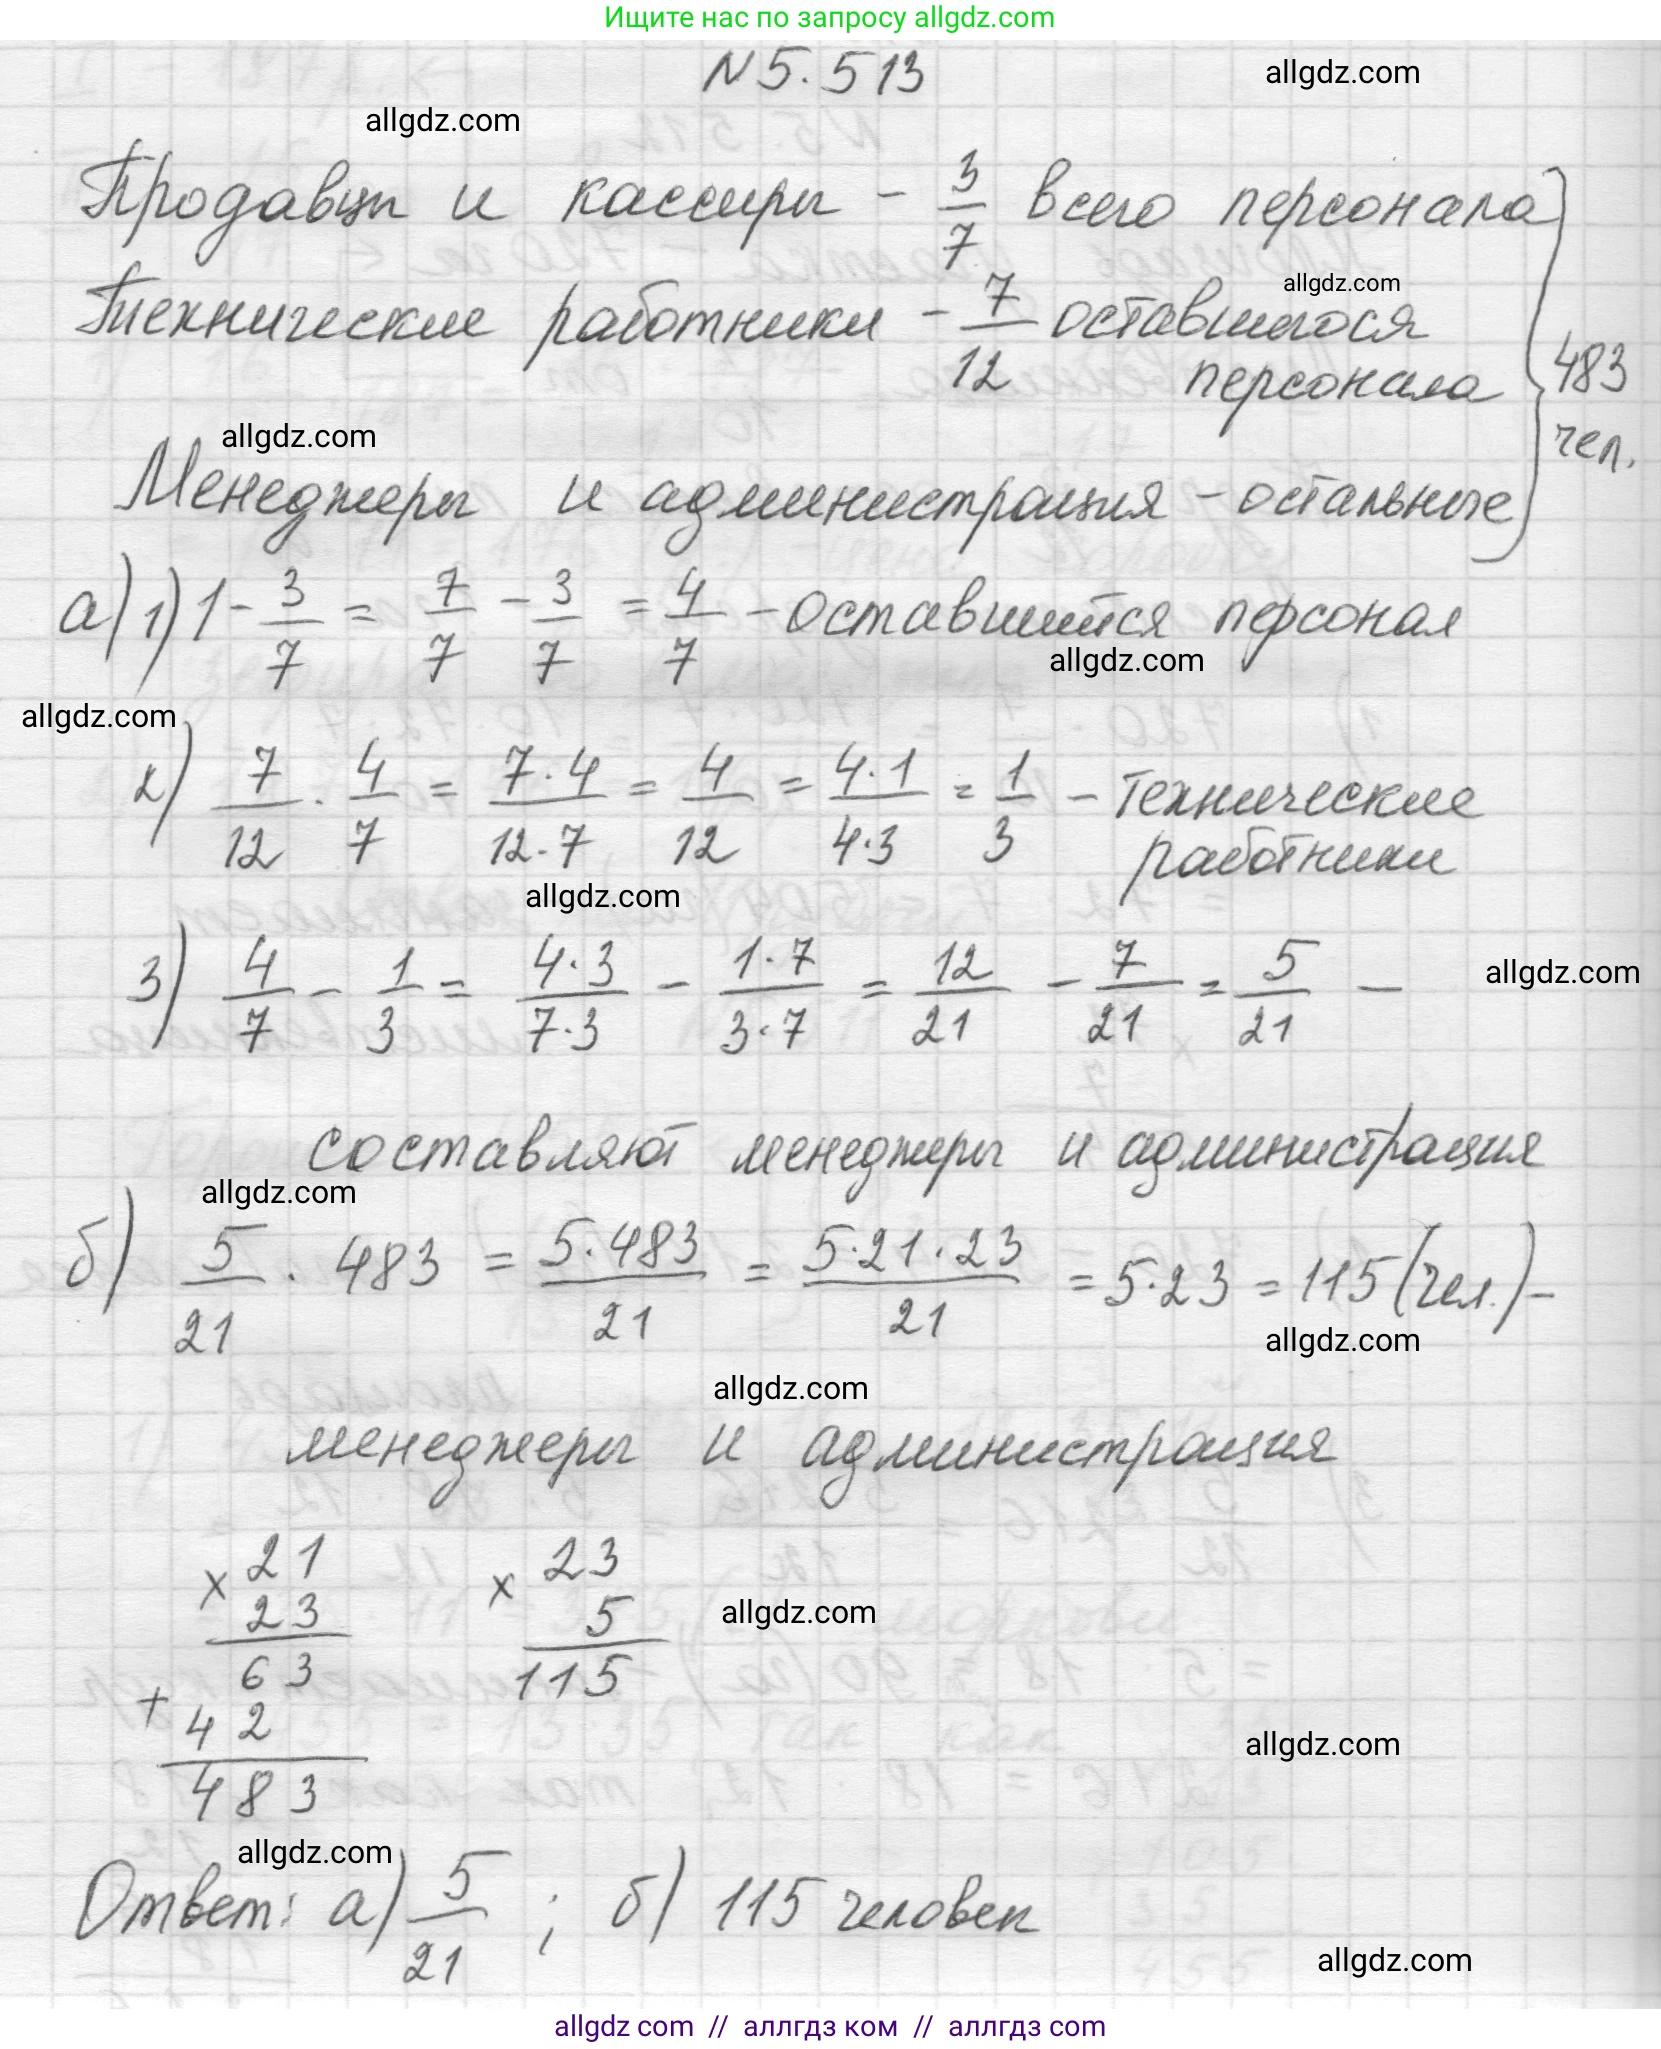 Ищите нас по запросу allgdz.com
N 5.513
allgdz.com
allgdz.com
Продавцы и кассиры - 3/7 всего персонала
Технические работники - 7/12 оставшегося
персонала
483
чел.
allgdz.com
allgdz.com
Менеджеры и администрация - остальные
а) 1) 1 - 3/7 = 7/7 - 3/7 = 4/7 - оставшийся персонал
allgdz.com
allgdz.com
2) 7/12 · 4/7 = 7·4/12·7 = 4/12 = 4·1/4·3 = 1/3 - технические
работники
allgdz.com
3) 4/7 - 1/3 = 4·3/7·3 - 1·7/3·7 = 12/21 - 7/21 = 5/21 -
allgdz.com
составляют менеджеры и администрация
allgdz.com
б) 5/21 · 483 = 5·483/21 = 5·21·23/21 = 5·23 = 115 (чел.) -
allgdz.com
allgdz.com
менеджеры и администрация
× 21
23
63
+ 42
483
× 23
5
115
allgdz.com
allgdz.com
allgdz.com
Ответ: а) 5/21 ; б) 115 человек
allgdz.com
allgdz com // аллгдз ком // аллгдз com